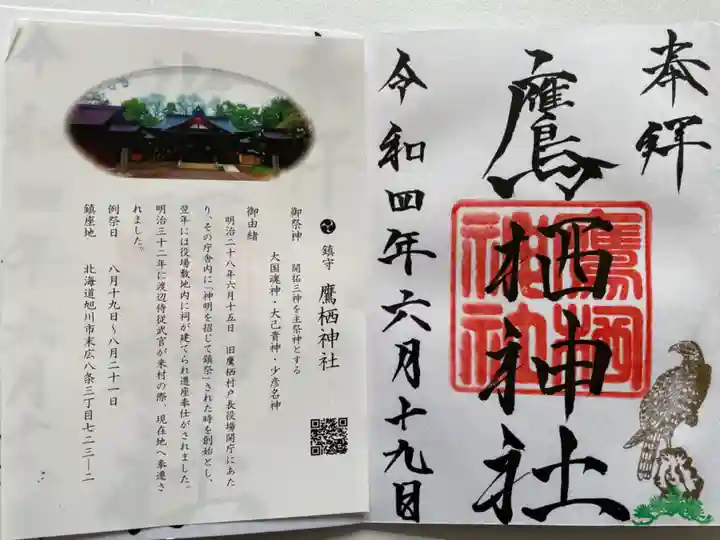 奉拝
鷹栖神社
令和四年六月十九日
鷹栖
神社
鎮守 鷹栖神社
御祭神 開拓三神を主祭神とする
大国魂神・大己貴神・少彦名神
御由緒
明治二十八年六月十五日 旧鷹栖村戸長役場開庁にあた
り、その庁舎内に「神明を招じて鎮祭」された時を創始とし、
翌年には役場敷地内に祠が建てられ遷座奉仕がされました。
明治三十二年に渡辺侍従武官が来村の際、現在地へ奉遷さ
れました。
例祭日 八月十九日～八月二十一日
鎮座地 北海道旭川市末広八条三丁目七二三―二